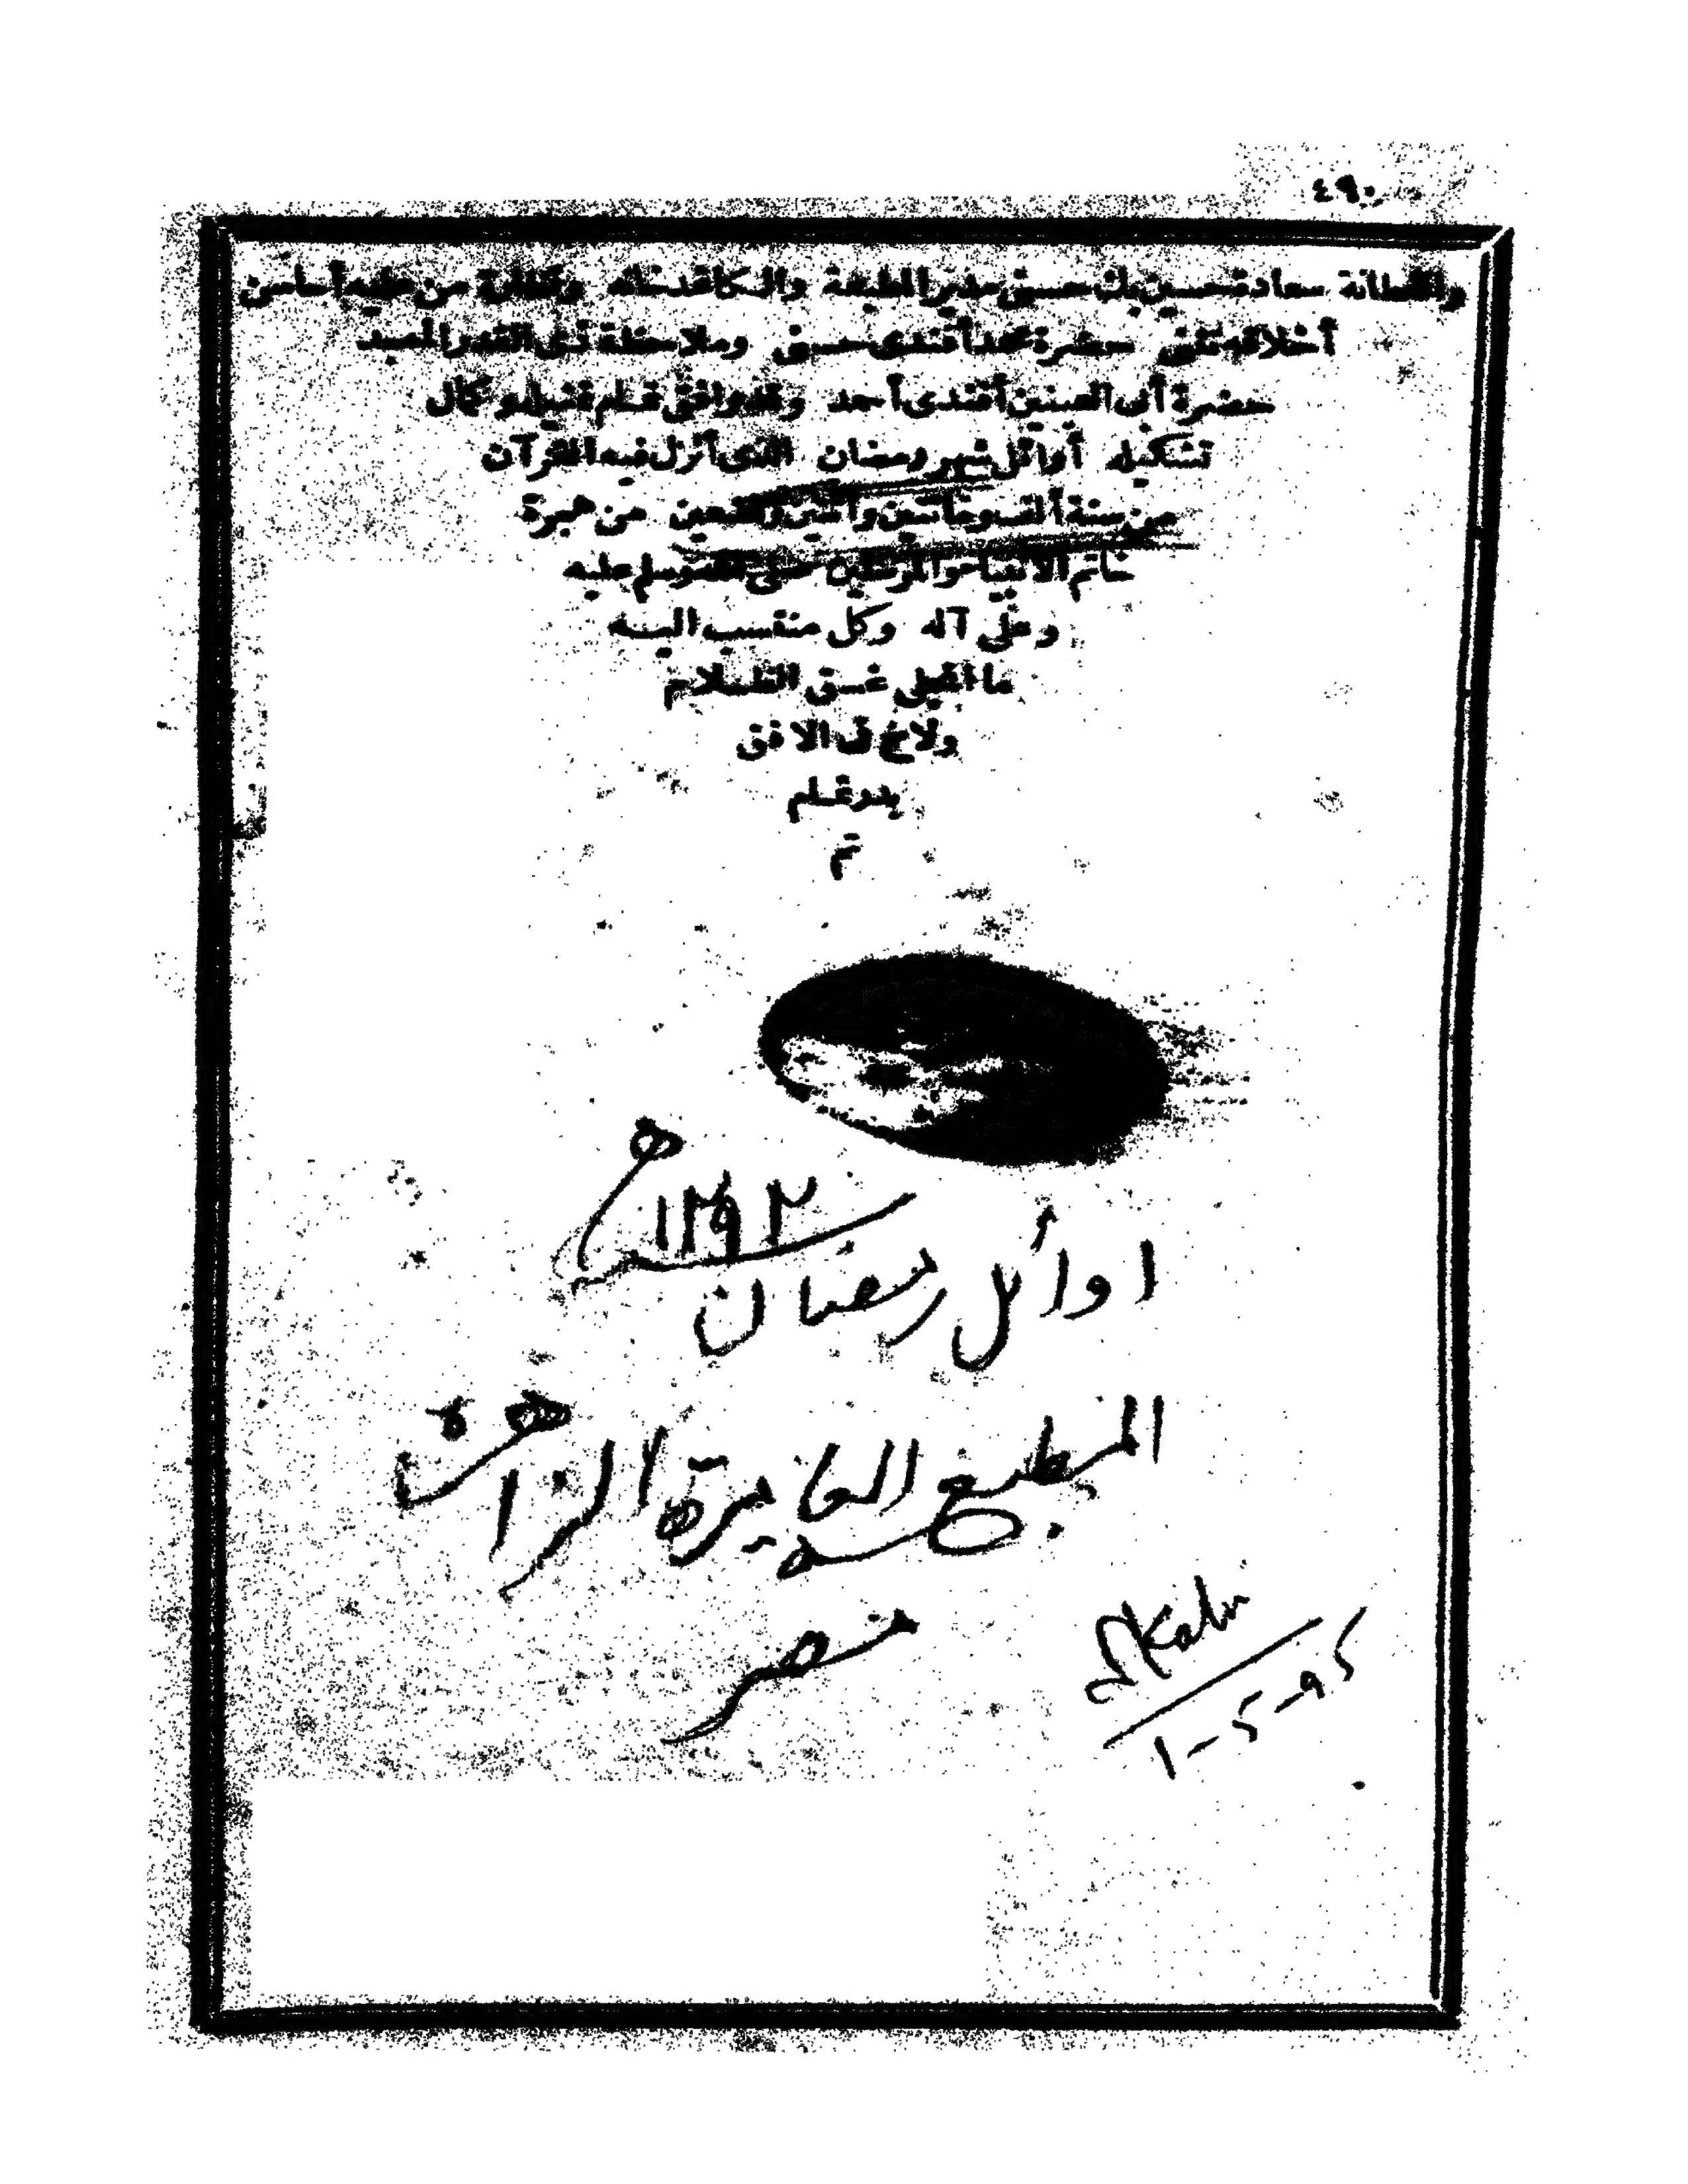 ٤٩٠
والفطانة سعادة حسين بك حسنى مدير المطبعة والكاغدخانه ونظارة من عليه أحاسن
أخلاقه تثنى حضرة محمد أفندى حسنى وملاحظة ذى القدر الممجد
حضرة أبى العينين أفندى أحمد وقد وافق تمام تمثيله وكمال
تشكيله أوائل شهر رمضان الذى أنزل فيه القرآن
من سنة ألف ومائتين واثنين وتسعين من هجرة
خاتم الانبياء والمرسلين صلى الله وسلم عليه
وعلى آله وكل منتسب اليه
ما انجلى غسق الظلام
ولاح فى الافق
بدر تمام
تم
١٢٩٢ ھ
اوائل رمضان
المطبعة العامرة الزاهرة
بمصر
1-5-95